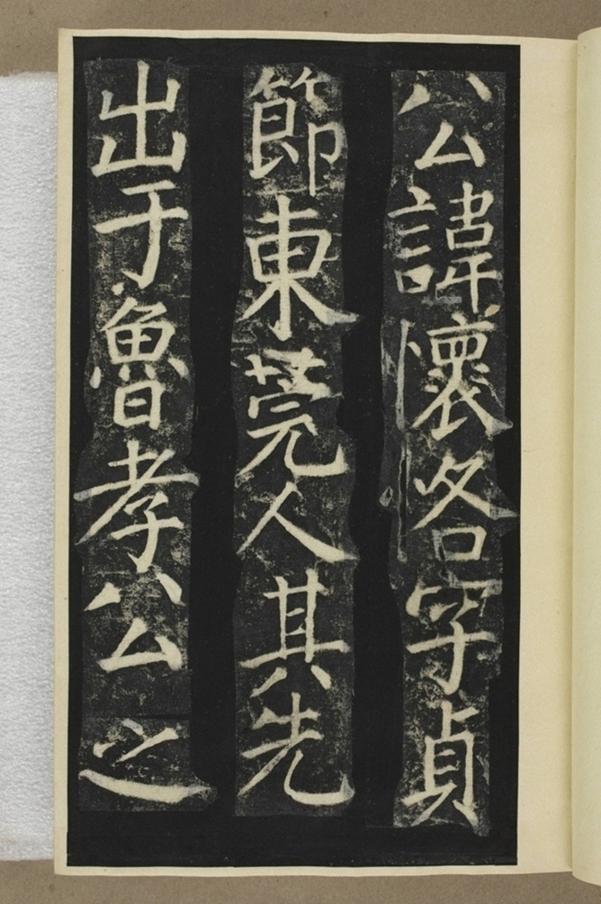 公諱懷恪字貞
節東莞人其先
出于魯孝公之